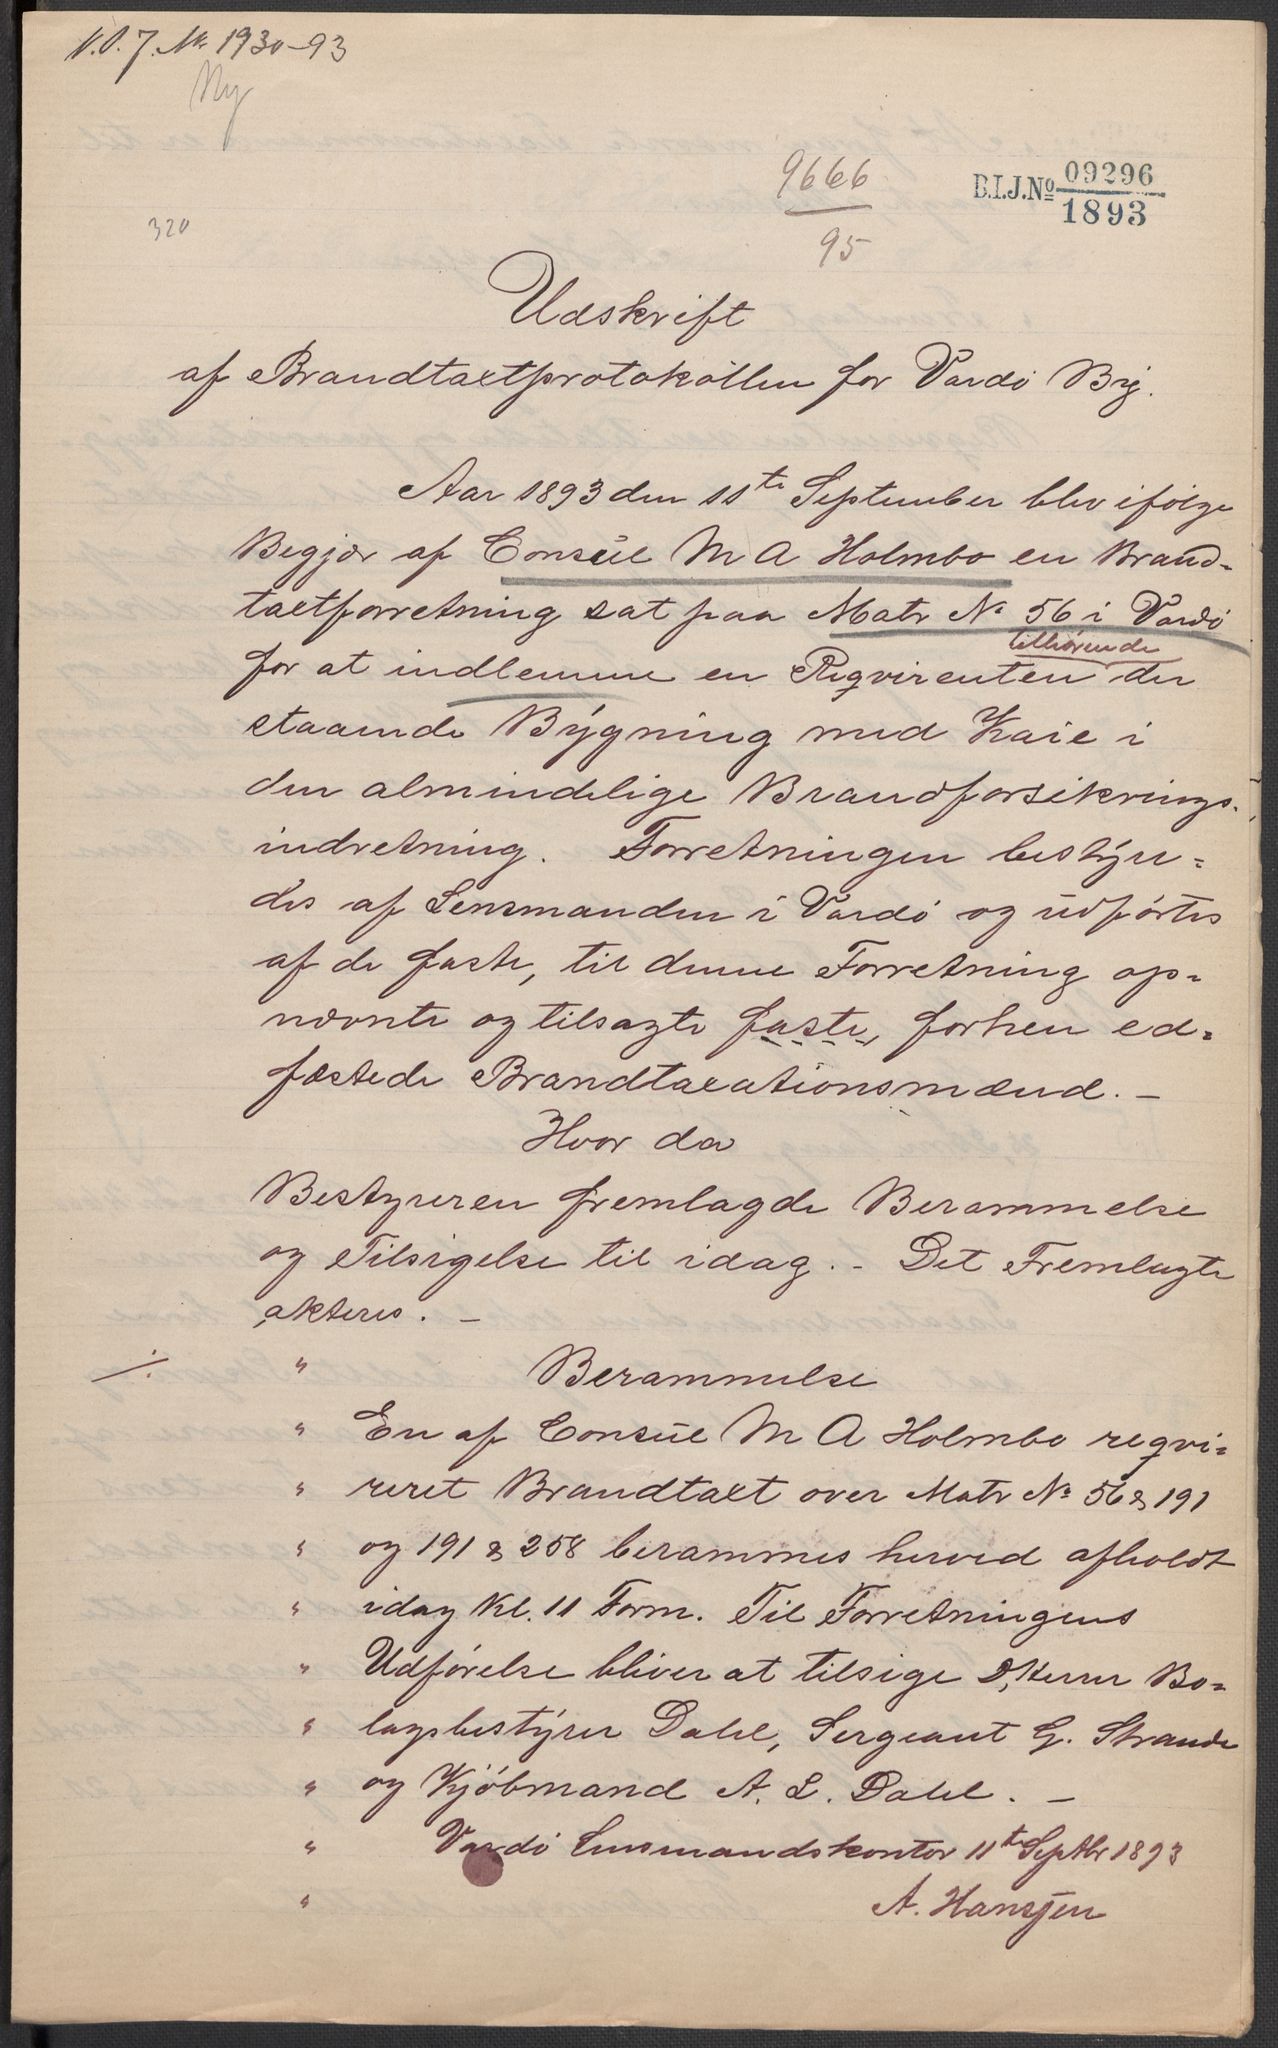 V.P.7. No 1930-93
Ny
9666
95
B.I.J.No 09296
1893
320
Udskrift
af Brandtaxtprotokollen for Vardö By.
Aar 1893 den 11te September blev ifølge
Begjær af Consul M A Holmbo en Brand-
taxtforretning sat paa Matr No 56 i Vardö
tilhørende
for at indlemme en Reqvirenten der
staaende Bygning med Kaie i
den almindelige Brandforsikrings-
indretning. Forretningen bestyre-
des af Lensmanden i Vardö og udførtes
af de faste, til denne Forretning op-
nævnte og tilsagte faste, forhen ed-
fæstede Brandtaxationsmænd. -
Hvor da
Bestyreren fremlagde Berammelse
og Tilsigelse til idag. - Det Fremlagte
akteres. -
./. " Berammelse
" En af Consul M A Holmbo reqvi-
" reret Brandtaxt over Matr No 56 & 191
" og 191 & 258 berammes herved afholdt
" idag Kl. 11 Form. Til Forretningens
" Udførelse bliver at tilsige D,Herrer Bo-
" lagsbestyrer Dahl, Sergeant G. Strande
" og Kjöbmand A. L. Dahl. -
" Vardö Lensmandskontor 11te Septbr 1893
" A. Hanssen